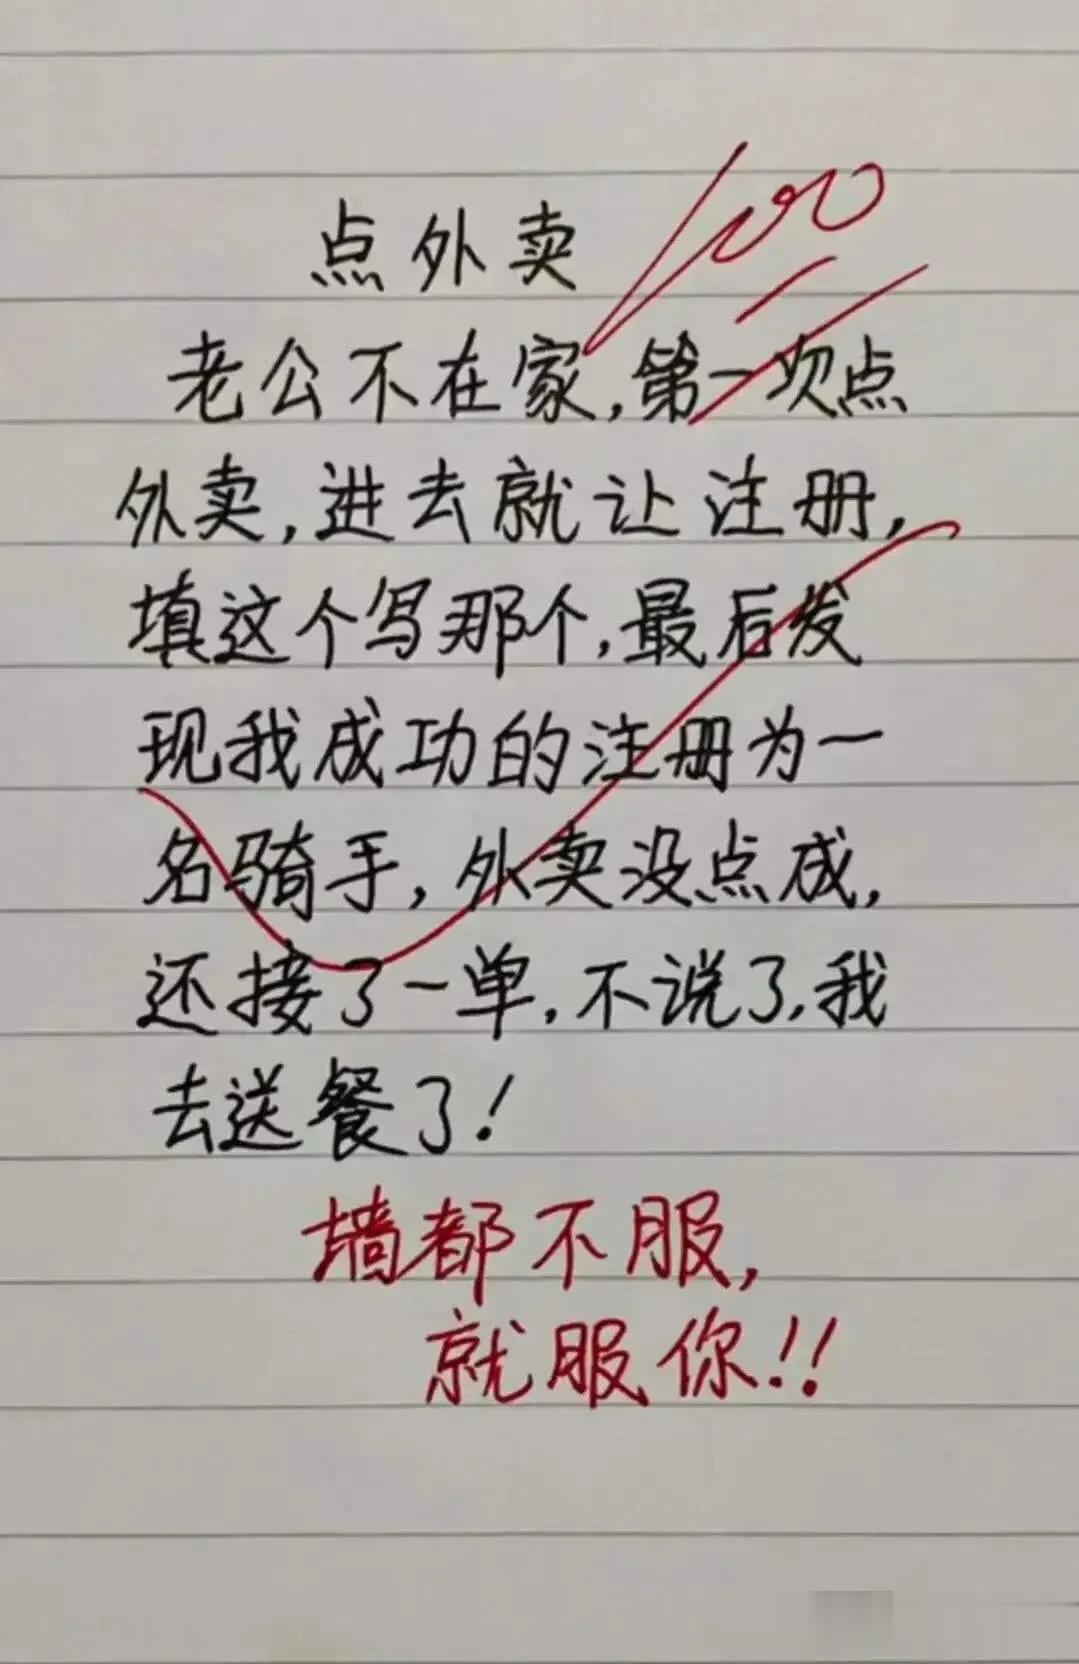 点外卖
100
老公不在家,第一次点
外卖,进去就让注册,
填这个写那个,最后发
现我成功的注册为一
名骑手,外卖没点成,
还接了一单,不说了,我
去送餐了!
墙都不服,
就服你!!